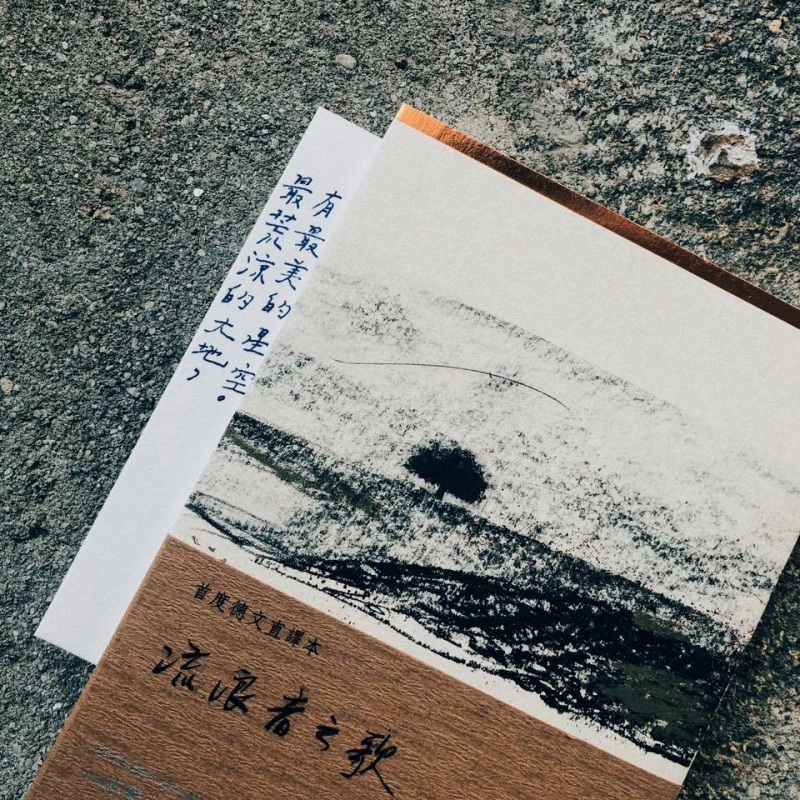 最荒涼的大地，
有最美的星空。
首度德文直譯本
流浪者之歌